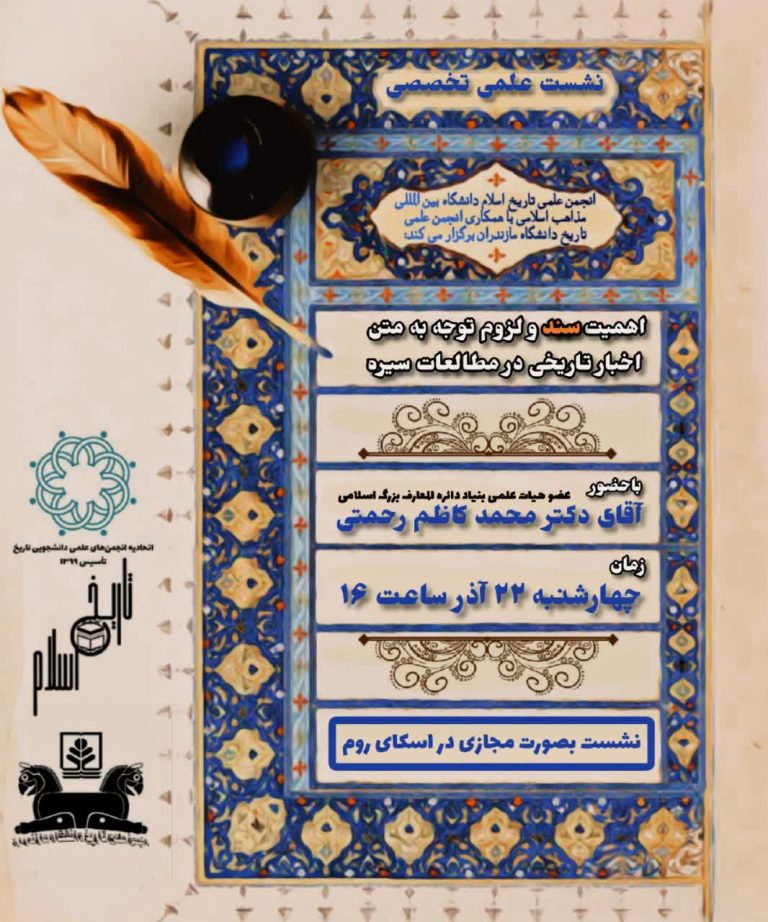 نشست علمی تخصصی
انجمن علمی تاریخ اسلام دانشگاه بین المللی
مذاهب اسلامی با همکاری انجمن علمی
تاریخ دانشگاه مازندران برگزار می کند:
اهمیت سند و لزوم توجه به متن
اخبار تاریخی در مطالعات سیره
باحضور
عضو هیات علمی بنیاد دائره المعارف بزرگ اسلامی
آقای دکتر محمد کاظم رحمتی
زمان
چهارشنبه ۲۲ آذر ساعت ۱۶
نشست بصورت مجازی در اسکای روم
اتحادیه انجمن‌های علمی دانشجویی تاریخ
تأسیس ۱۳۹۹
تاریخ
اسلام